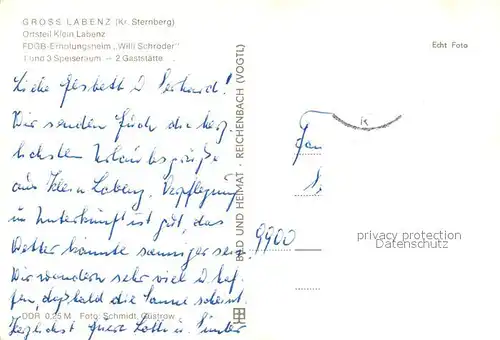 GROSS LABENZ (Kr. Sternberg)
Ortsteil Klein Labenz
FDGB-Erholungsheim „Willi Schröder"
1 und 3 Speiseraum — 2 Gaststätte
Echt Foto
Liebe Gisbeth
Wir senden Euch die herz-
lichsten Urlaubsgrüße
aus Klein Labenz. Verpflegung
u. Unterkunft ist gut, das
Wetter könnte sonniger sein.
Wir wandern sehr viel
fen, daß bald die Sonne scheint.
Herzlichst Eure Lotti u. Günter
BILD UND HEIMAT · REICHENBACH (VOGTL)
9900
privacy protection
Datenschutz
DDR 0,25 M Foto: Schmidt, Güstrow